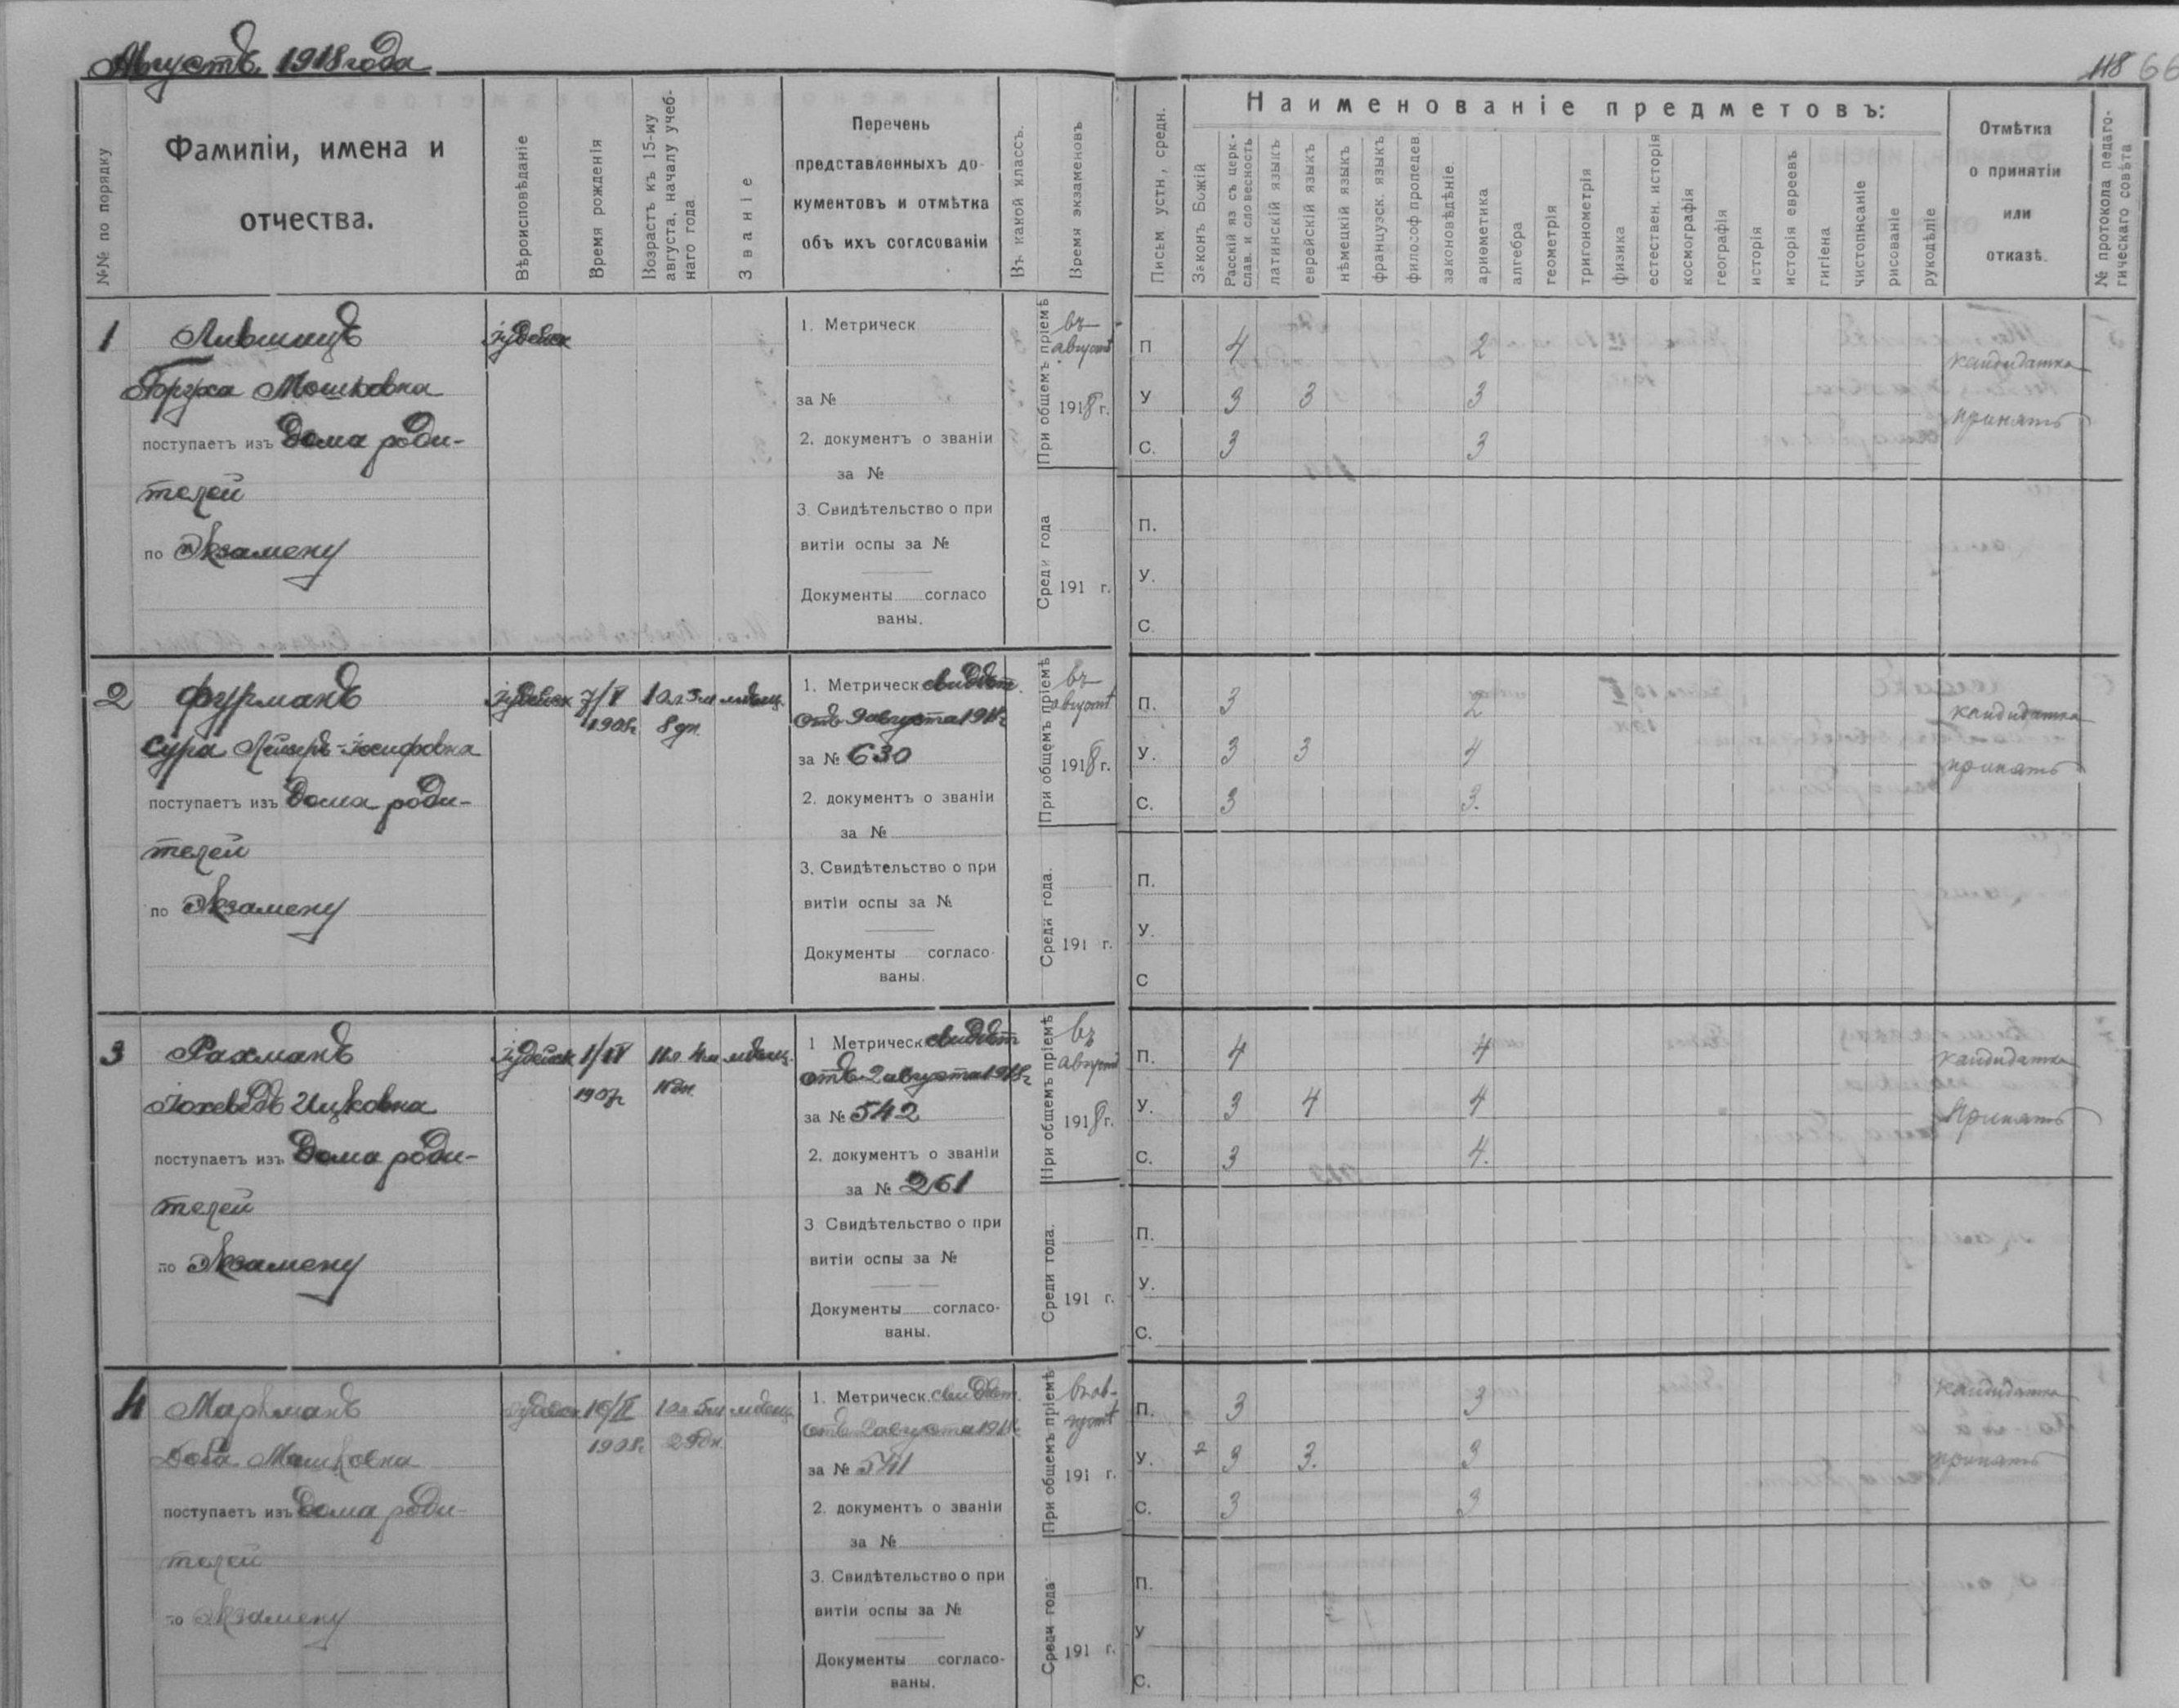 Августъ 1918 года
118 66
№№ по порядку
Фамиліи, имена и
отчества.
Вѣроисповѣданіе
Время рожденія
Возрастъ къ 15-му
августа, началу учеб-
наго года
Званіе
Перечень
представленныхъ до-
кументовъ и отмѣтка
объ ихъ соглсованіи
Въ какой классъ.
Время экзаменовъ
Письм устн, средн.
Наименованіе предметовъ:
Законъ Божій
Расскій яз съ церк.-
слав. и словесность
латинскій языкъ
еврейскій языкъ
нѣмецкій языкъ
французск. языкъ
философ пропедев.
законовѣдѣніе.
ариөметика
алгебра
геометрія
тригонометрія
физика
естествен. исторія
космографія
географія
исторія
исторія евреевъ
гигіена
чистописаніе
рисованіе
рукодѣліе
Отмѣтка
о принятіи
или
отказѣ.
№ протокола педаго-
гическаго совѣта
1
Лившицъ
Мошковна
поступаетъ изъ Дома роди-
телей
по Экзамену
Іудейск
1. Метрическ
за №
2. документъ о званіи
за №
3. Свидѣтельство о при
витіи оспы за №
Документы согласо
ваны.
При общемъ пріемѣ
въ
августѣ
1918 г.
Среди года
191 г.
П 4 2
У 3 3 3
С. 3 3
кандидатка
принять
П.
У.
С.
2
Фурманъ
Сура Лейзеръ-Іосифовна
поступаетъ изъ Дома роди-
телей
по Экзамену
Іудейск 7/V 10л 3м мѣщ.
1908г 8 дн.
1. Метрическ свидѣт.
отъ 9 августа 1918г
за № 630
2. документъ о званіи
за №
3. Свидѣтельство о при
витіи оспы за №
Документы согласо-
ваны.
При общемъ пріемѣ
въ
августѣ
1918 г.
Среди года.
191 г.
П. 3 2
У. 3 3 4
С. 3 3.
кандидатка
принять
П.
У.
С
3
Рахманъ
Іохеведъ Ицковна
поступаетъ изъ Дома роди-
телей
по Экзамену
Іудейск 1/IV 11л 4м мѣщ.
1907г
1 Метрическ свидѣт
отъ 2 августа 1918г
за № 542
2. документъ о званіи
за № 261
3 Свидѣтельство о при
витіи оспы за №
Документы согласо-
ваны.
При общемъ пріемѣ
въ
августѣ
1918 г.
Среди года.
191 г.
П. 4 4
У. 3 4 4
С. 3 4.
кандидатка
Принять
П.
У.
С.
4
Маркманъ
Доба Мошковна
поступаетъ изъ Дома роди-
телей
по Экзамену
Іудейск 10л 5м мѣщ.
1908г
1. Метрическ. свидѣт.
отъ 2 августа 1918г
за № 541
2. документъ о званіи
за №
3. Свидѣтельство о при
витіи оспы за №
Документы согласо-
ваны.
При общемъ пріемѣ
въ ав-
густѣ
191 г.
Среди года
191 г.
П. 3 3
У. 2 3 3. 3
С. 3 3
кандидатка
принять
П.
У
С.